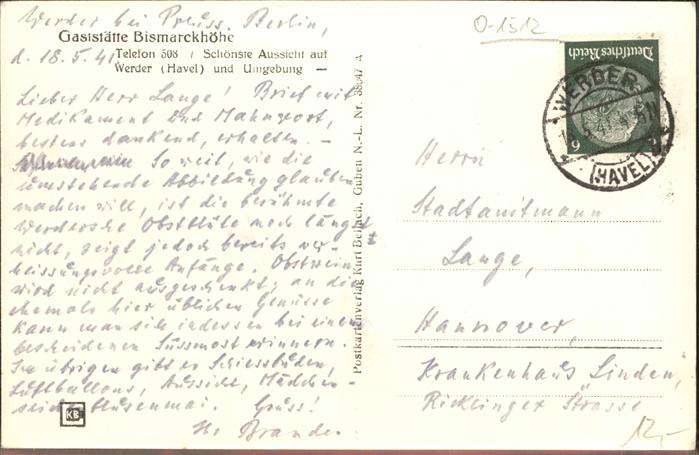 Werder bei Preuss. Berlin,
Gaststätte Bismarckhöhe
d. 18.5.41
Telefon 508 / Schönste Aussicht auf
Werder (Havel) und Umgebung —
Lieber Herr Lange! Brief mit
Medikament und Mahnwort,
bestens dankend, erhalten. —
So weit, wie die
umstehende Abbildung glauben
machen will, ist die berühmte
Werdersche Obstblüte noch längst
nicht, zeigt jedoch bereits ver-
heissungsvolle Anfänge. Obstwein
wird nicht ausgeschenkt; an die
ehemals hier üblichen Genüsse
kann man sich indessen bei einem
bescheidenen Süssmost erinnern.
Im übrigen gibt es Schiessbuden,
Luftballons, Aussicht, Mädchen-
blusenmai. Gruss!
Ihr Brandes
KB
Postkartenverlag Kurt Bellach, Guben N.-L. Nr. 38047 A
O-1512
Deutsches Reich
6
WERDER
(HAVEL)
Herrn
Stadtamtmann
Lange,
Hannover,
Krankenhaus Linden,
Ricklinger Strasse
12,-